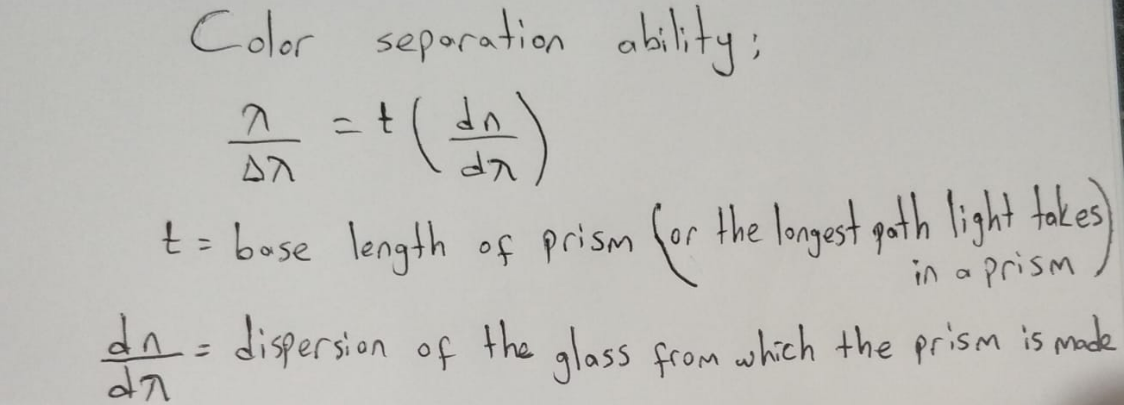 Color separation ability;
λ/Δλ = t (dn/dλ)
t = base length of prism (or the longest path light takes
in a prism)
dn/dλ = dispersion of the glass from which the prism is made